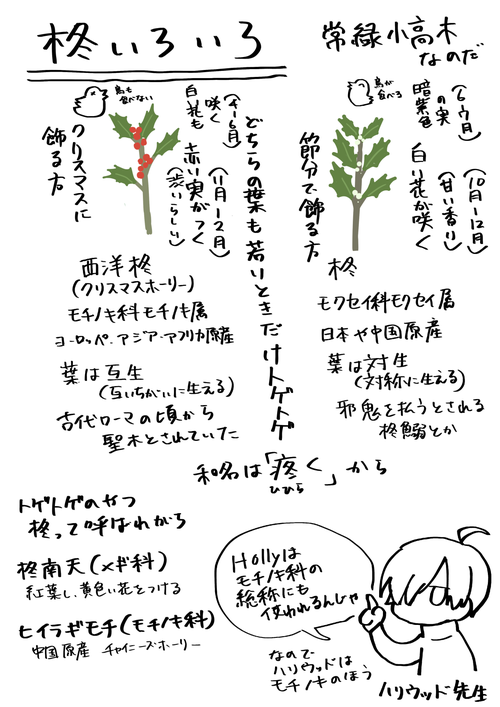 柊いろいろ
常緑小高木
なのだ
鳥も
食べない
クリスマスに
飾る方
白花も
咲く
(4-6月)
赤い実がつく
(11月-2月)
(渋いらしい)
どちらの葉も若いときだけトゲトゲ
鳥が
食べる
節分で飾る方
暗紫色
の実
(6,7月)
白い花が咲く
(甘い香り)
(10月-12月)
西洋柊
(クリスマスホーリー)
モチノキ科モチノキ属
ヨーロッペ・アジア・アフリカ原産
葉は互生
(互いちがいに生える)
古代ローマの頃から
聖木とされていた
柊
モクセイ科モクセイ属
日本や中国原産
葉は対生
(対称に生える)
邪鬼を払うとされる
柊鰯とか
和名は「疼く」から
ひひら
トゲトゲのやつ
柊って呼ばれがち
柊南天(メギ科)
紅葉し、黄色い花をつける
ヒイラギモチ(モチノキ科)
中国原産 チャイニーズホーリー
Hollyは
モチノキ科の
総称にも
使われるんじゃ
なので
ハリウッドは
モチノキのほう
ハリウッド先生